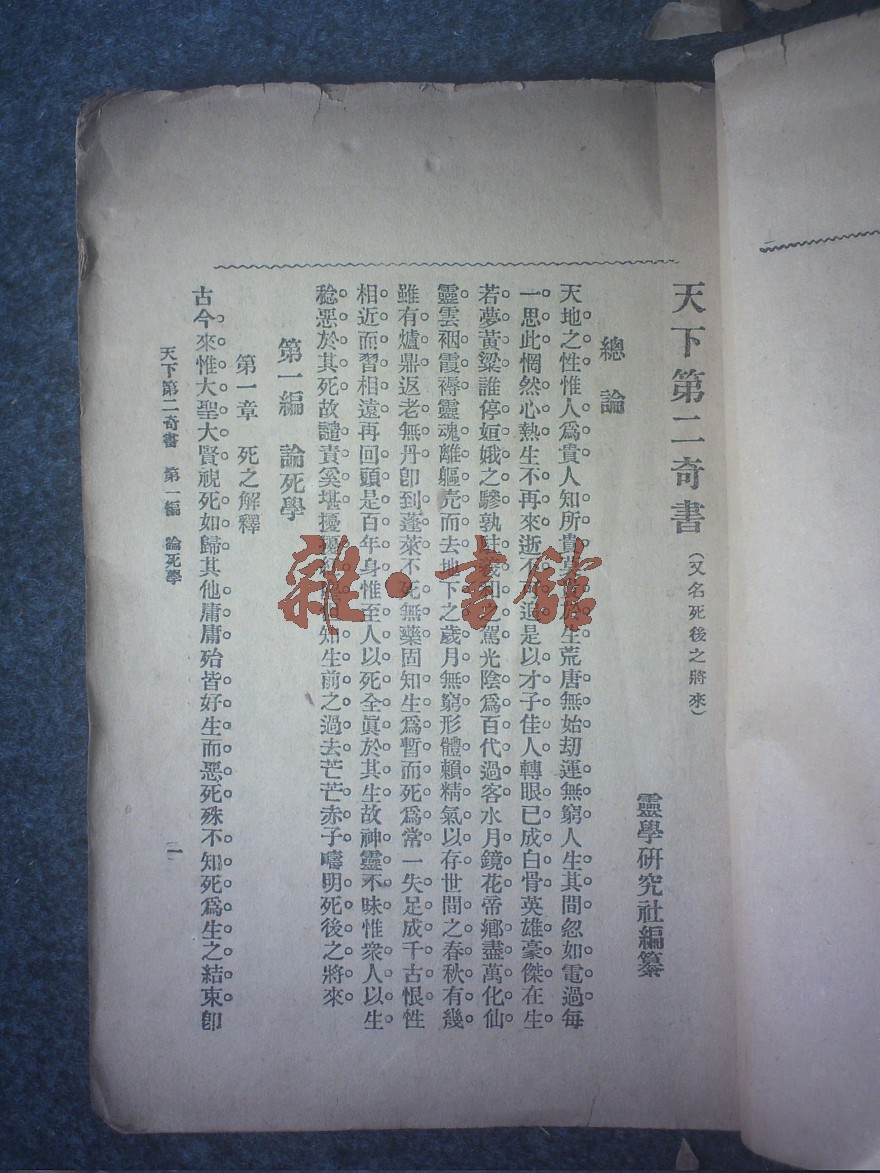 天下第二奇書(又名死後之將來)
靈學研究社編纂
總論
天地之性惟人爲貴人知所貴莫貴於生荒唐無始劫運無窮人生其間忽如電過每
一思此惘然心熱生不再來逝不可追是以才子佳人轉眼已成白骨英雄豪傑在生
若夢黃粱誰停姮娥之驂孰駐羲和之駕光陰爲百代過客水月鏡花帝鄉盡萬化仙
靈雲裀霞褥靈魂離軀壳而去地下之歲月無窮形體賴精氣以存世間之春秋有幾
雖有爐鼎返老無丹卽到蓬萊不死無藥固知生爲暫而死爲常一失足成千古恨性
相近而習相遠再回頭是百年身惟至人以死全眞於其生故神靈不昧惟衆人以生
稔惡於其死故譴責奚堪擾擾知生前之過去芒芒赤子疇明死後之將來
第一編 論死學
第一章 死之解釋
古今來惟大聖大賢視死如歸其他庸庸殆皆好生而惡死殊不知死爲生之結束卽
天下第二奇書 第一編 論死學
一
雜·書館